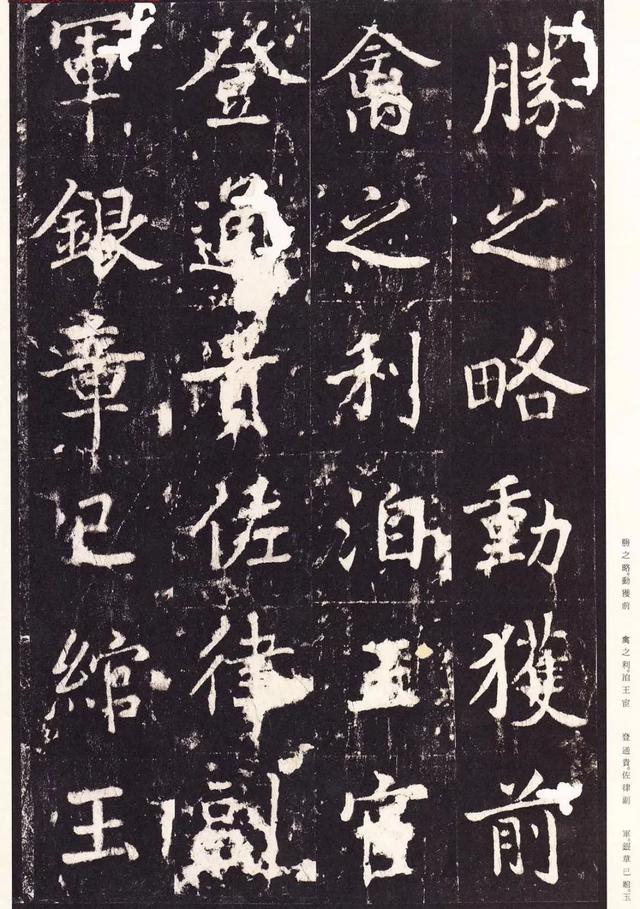 勝之略動獲前
禽之利洎王宦
登通貴佐律副
軍銀章已綰王
勝之略。動獲前 禽之利。洎王宦 登通貴。佐律副 軍。銀章已綰。玉